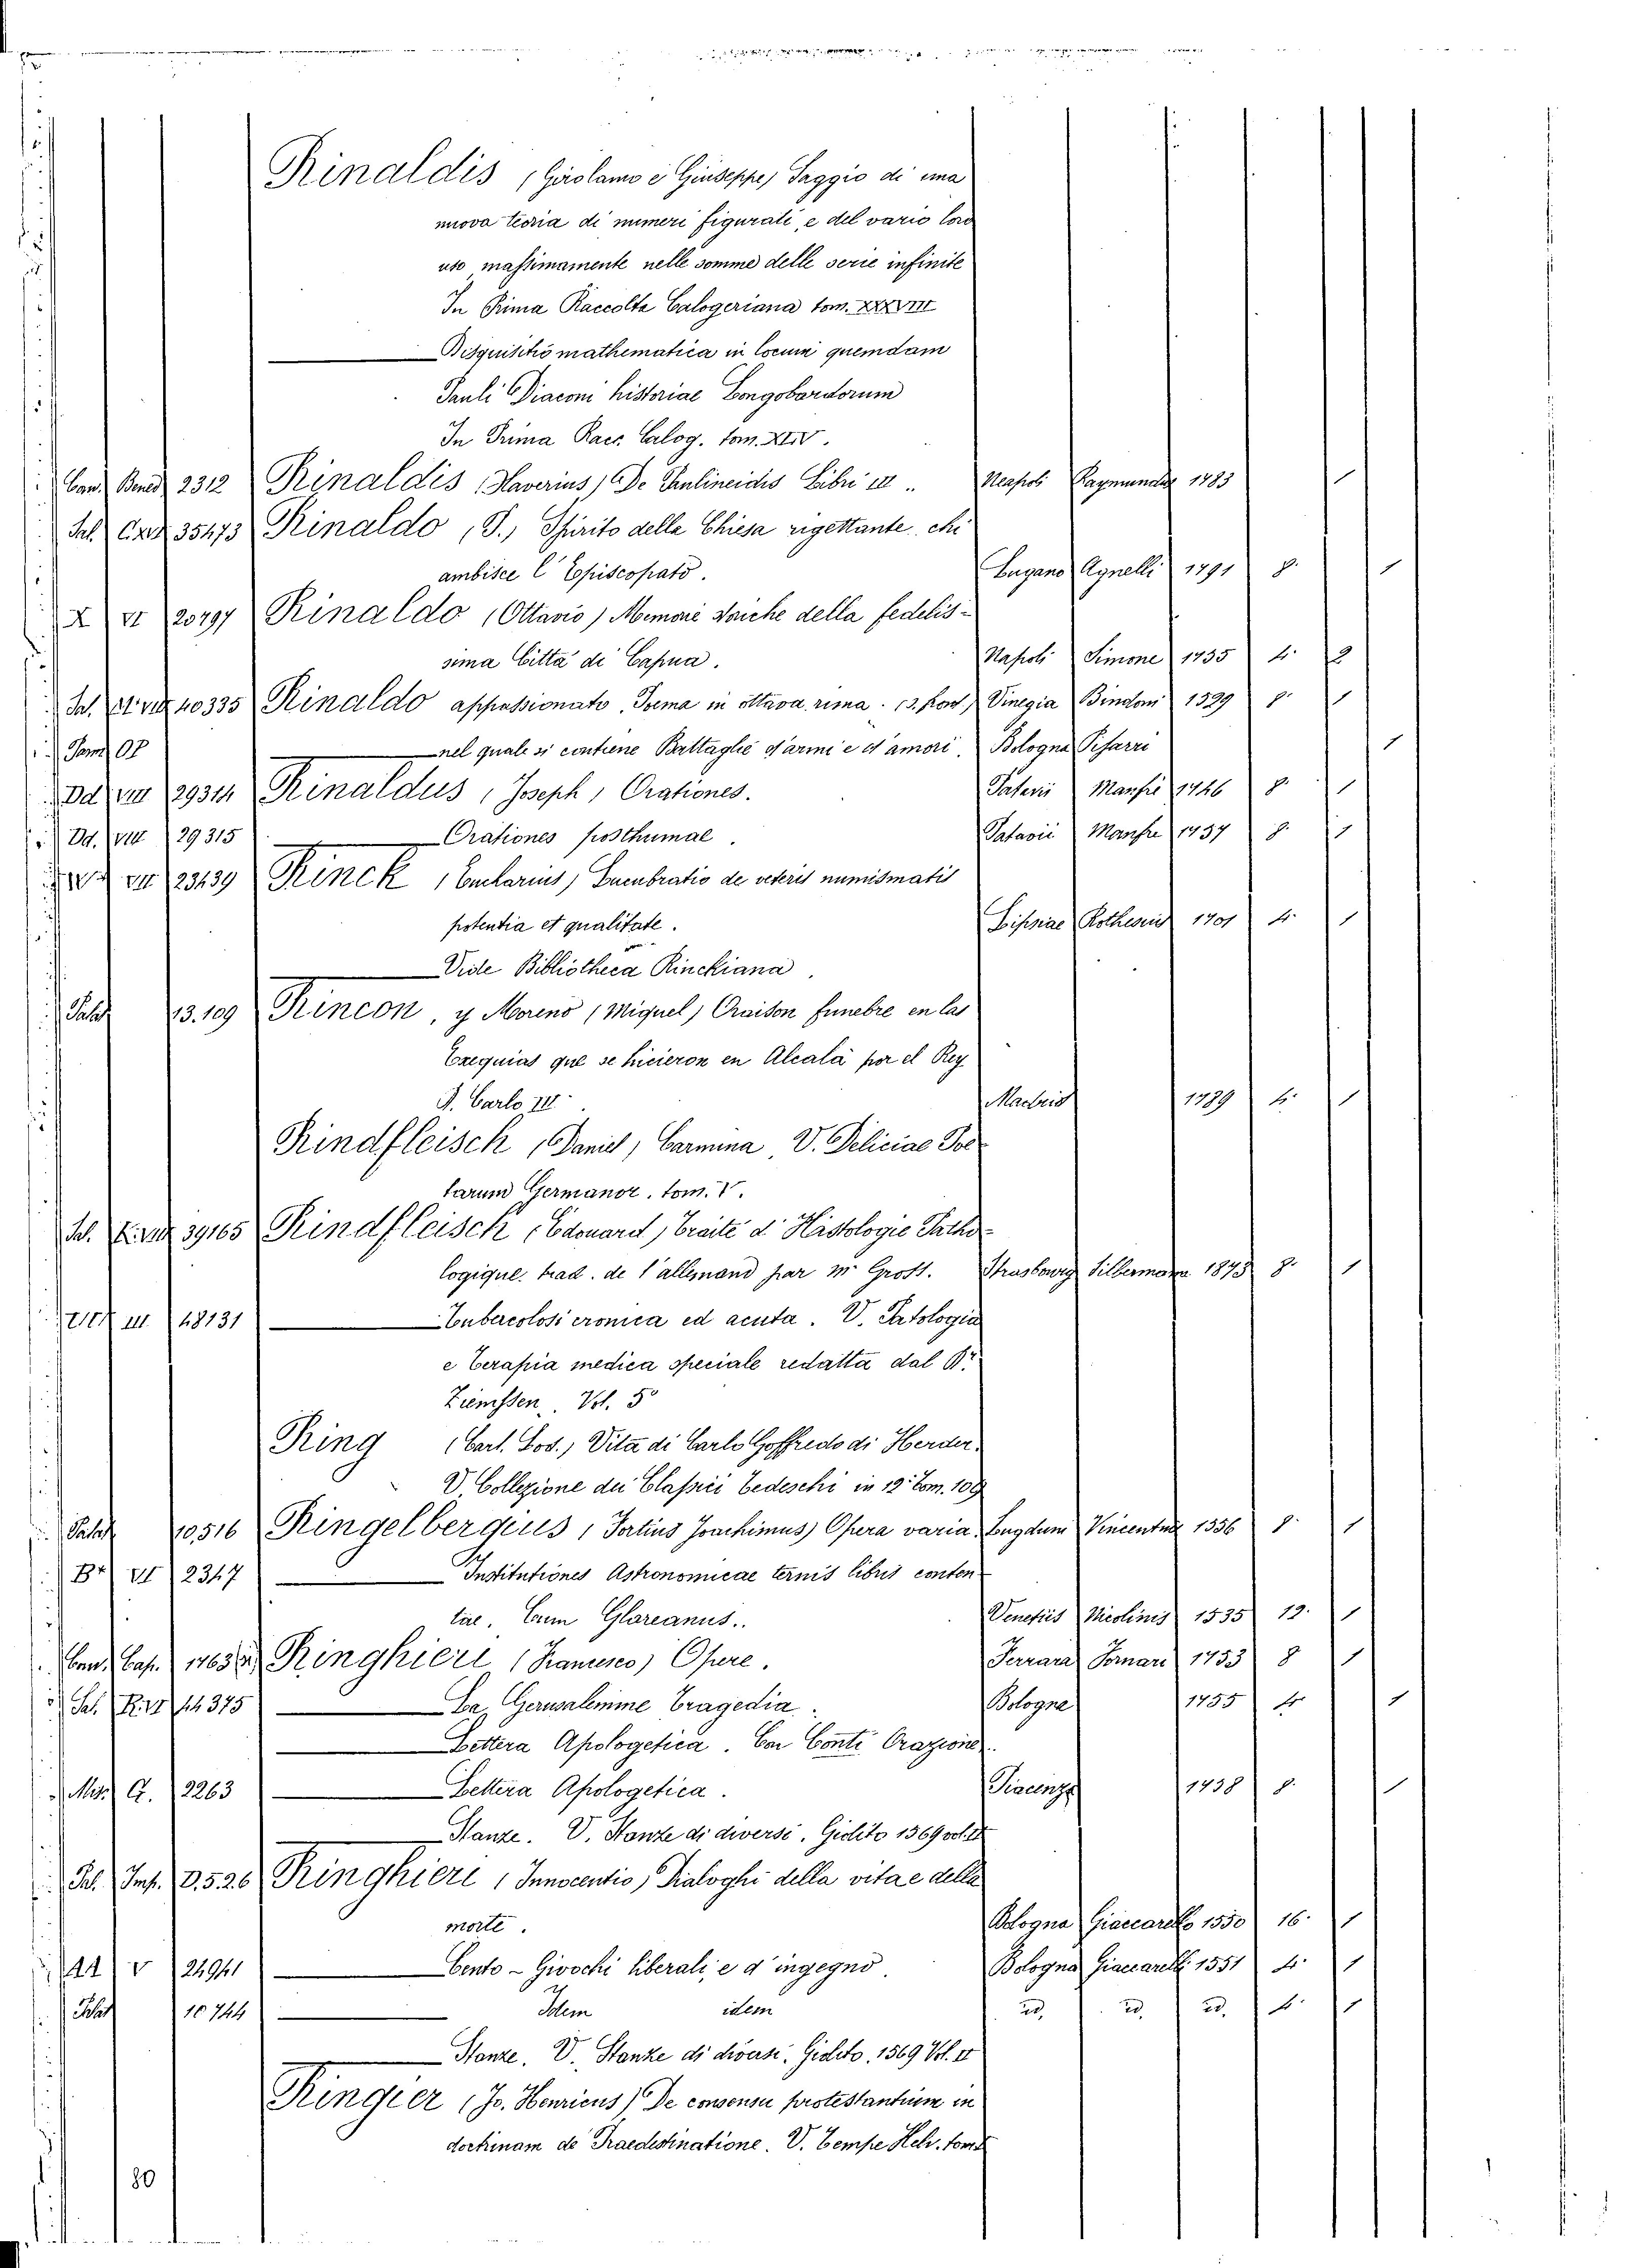 Rinaldis (Girolamo e Giuseppe) Saggio di una
nuova teoria di numeri figurati, e del vario loro
uso massimamente nelle somme delle serie infinite
In Prima Raccolta Calogeriana tom. XXXVIII
Disquisitio mathematica in locum quemdam
Pauli Diaconi historiae Longobardorum
In Prima Racc. Calog. tom. XLIV.
Can. Bened 2312 Rinaldis (Xaverius) De Paulineidis Libri III. Neapoli Raymundi 1783 1
Sal. 35473 Rinaldo (J.) Spirito della Chiesa rigettante chi
ambisce l'Episcopato. Lugano Agnelli 1791 8. 1
X VI 20797 Rinaldo (Ottavio) Memorie storiche della fedelis-
sima Città di Capua. Napoli Simone 1755 4. 2
40335 Rinaldo appassionato. Poema in ottava rima. Vinegia Bindoni 1529 8. 1
nel quale si contiene Battaglie d'armi e d'amori. Bologna Pisarri 1
Dd VIII 29314 Rinaldus (Joseph) Orationes. Patavii Manfré 1746 8. 1
Dd. VIII 29315 Orationes posthumae. Patavii Manfre 1757 8. 1
VII 23439 Rinck (Eucharius) Lucubratio de veteris numismatis
potentia et qualitate. Lipsiae Rothesius 1701 4. 1
Vide Bibliotheca Rinckiana.
13.109 Rincon, y Moreno (Miguel) Oraison funebre en las
Exequias que se hicieron en Alcalà por el Rey
D. Carlo III. Madrid 1789 4. 1
Rindfleisch (Daniel) Carmina, V. Deliciae Poe-
tarum Germanor. tom. V.
39165 Rindfleisch (Edouard) Traité d'Histologie Patho-
logique. trad. de l'allemand par Mr Gross. Strasbourg Silbermann 1873 8. 1
III 48131 Tubercolosi cronica ed acuta. V. Patologia
e Terapia medica speciale redatta dal Dr
Ziemssen. Vol. 5°
Ring (Carl. Lod.) Vita di Carlo Goffredo di Herder.
V. Collezione dei Classici Tedeschi in 12° Tom. 109
10,516 Ringelbergius (Fortius Joachimus) Opera varia Lugdum Vincentius 1556 8. 1
Br VI 2347 Institutiones Astronomicae ternis libris conten-
tae, Cum Glareanus. Venetiis Nicolinis 1535 12. 1
Can. Cap. Ringhieri (Francesco) Opere. Ferrara Fornari 1753 8 1
Sal. 44375 La Gerusalemme Tragedia. Bologna 1755 4. 1
Lettera Apologetica. Con Conti Orazione.
Misc G. 2263 Lettera Apologetica. Piacenza 1738 8. 1
Stanze. V. Stanze di diversi. Giolito 1569 vol. II
Sal. Inf. D.526 Ringhieri (Innocentio) Dialoghi della vita e della
morte. Bologna Giaccarello 1550 16. 1
AA V 24941 Cento - Givochi liberali, e d'ingegno. Bologna Giaccarelli 1551 4. 1
10744 Idem idem id. id. id. 4. 1
Stanze. V. Stanze di diversi. Giolito. 1569 Vol. II
Ringier (Jo. Henricus) De consensu protestantium in
doctrinam de Praedestinatione. V. Tempe Helv. tom.
80